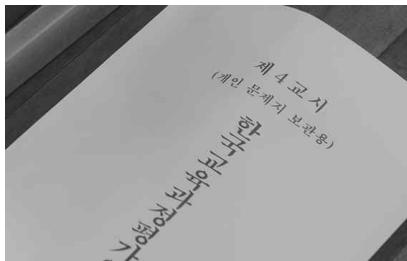 제 4 교시
(개인 문제지 보관용)
한국교육과정평가